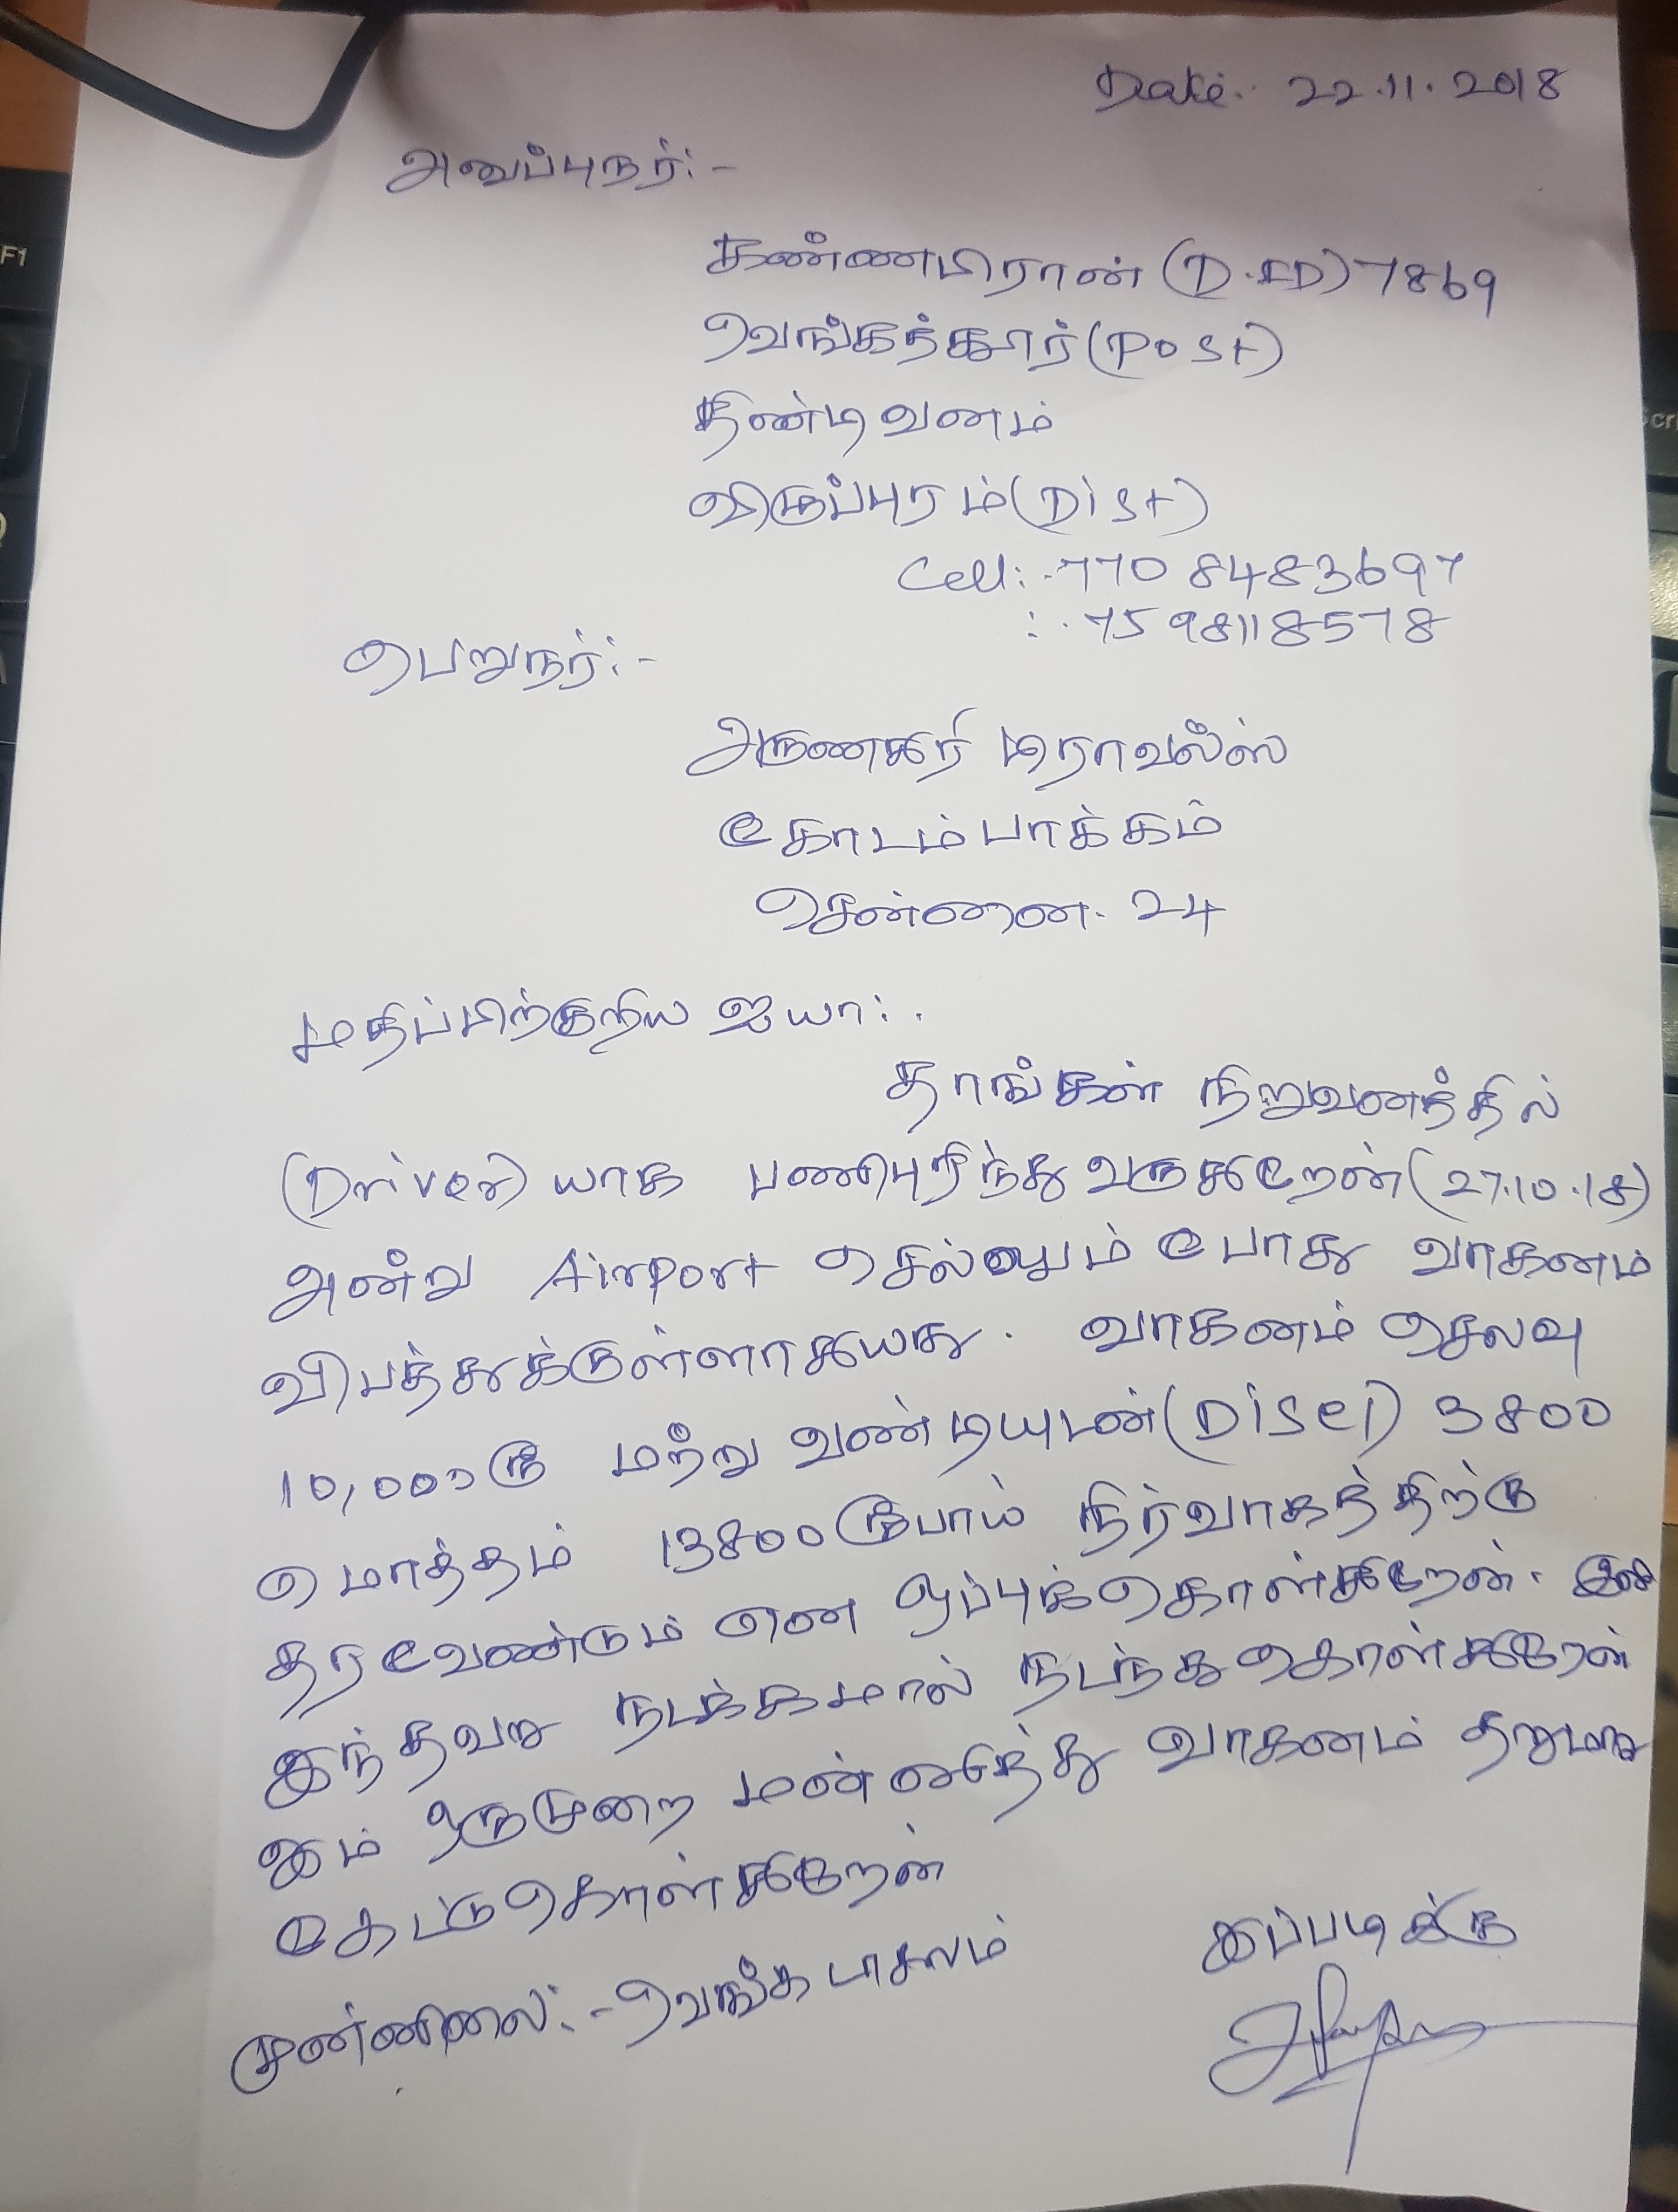 Date:- 22.11.2018
அனுப்புநர்:-
கண்ணபிரான் (D.ID) 7869
வெங்கந்தூர் (Post)
திண்டிவனம்
விருப்புரம் (Dist)
Cell:- 770 8483697
:- 7598118578
பெறுநர்:-
அருணகிரி டிராவல்ஸ்
கோடம்பாக்கம்
சென்னை- 24
மதிப்பிற்குறிய ஐயா:.
தாங்கள் நிறுவனத்தில்
(Driver) யாக பணிபுரிந்து வருகிறேன் (27.10.18)
அன்று Airport செல்லும் போது வாகனம்
விபத்துக்குள்ளாகியது. வாகனம் செலவு
10,000 ரூ மற்று வண்டியுடன் (Disel) 3800
மொத்தம் 13800 ரூபாய் நிர்வாகத்திற்கு
தரவேண்டும் என ஒப்புக்கொள்கிறேன். இனி
இந்தவறு நடக்கமால் நடந்துகொள்கிறேன்
இம் ஒருமுறை மன்னித்து வாகனம் தறுமாறு
கேட்டுகொள்கிறேன்
இப்படிக்கு
முன்னிலை:- வெங்கடாசலம்